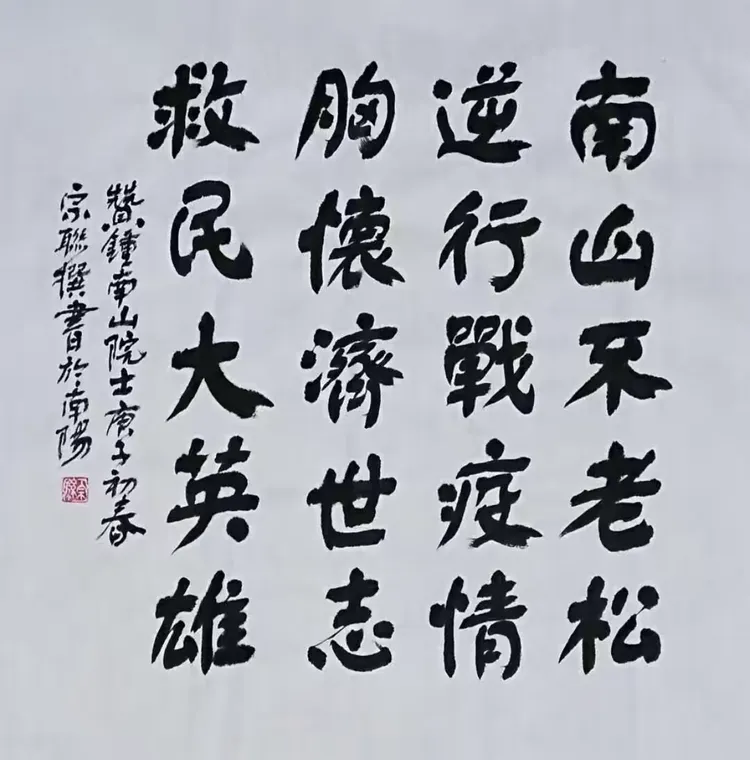 南山不老松
逆行戰疫情
胸懷濟世志
救民大英雄
贊鍾南山院士庚子初春
宗聯撰書於南陽